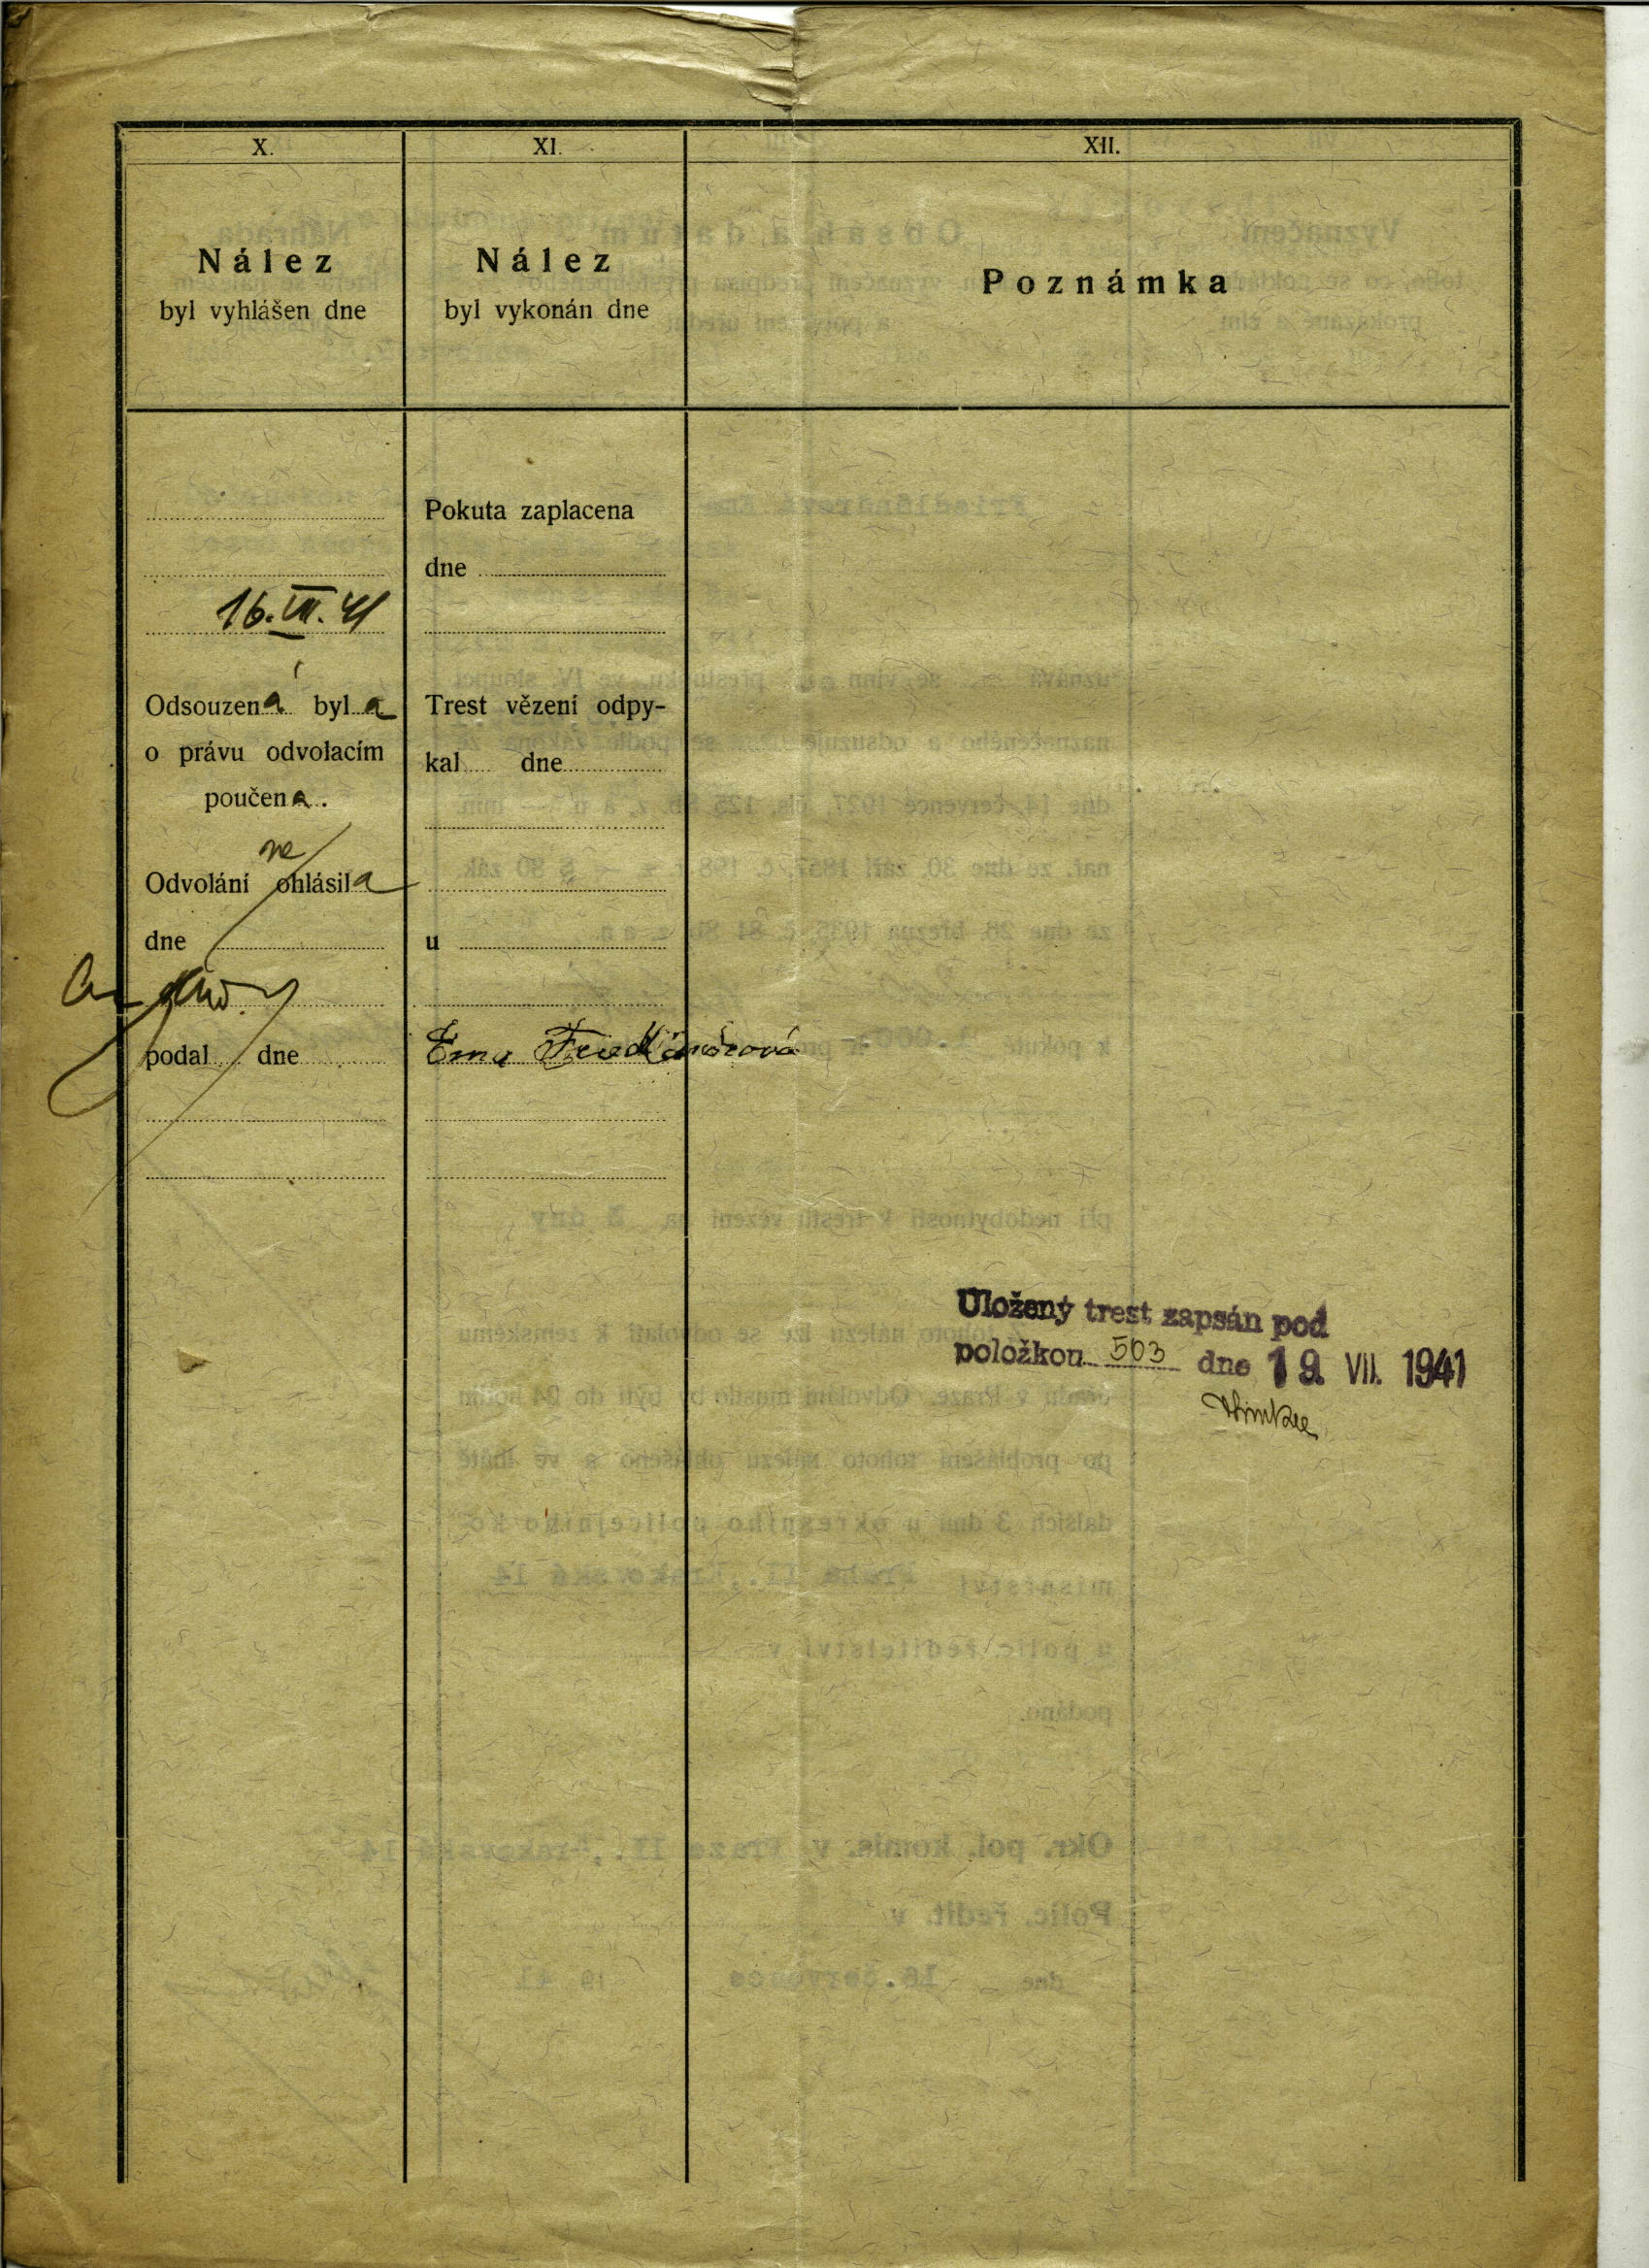 X.
Nález
byl vyhlášen dne
16. VII. 41
Odsouzená byla
o právu odvolacím
poučena.
Odvolání neohlásila
dne
podal dne
XI.
Nález
byl vykonán dne
Pokuta zaplacena
dne
Trest vězení odpy-
kal dne
u
Ema Friedländrová
XII.
Poznámka
Uložený trest zapsán pod
položkou 503 dne 19. VII. 1941